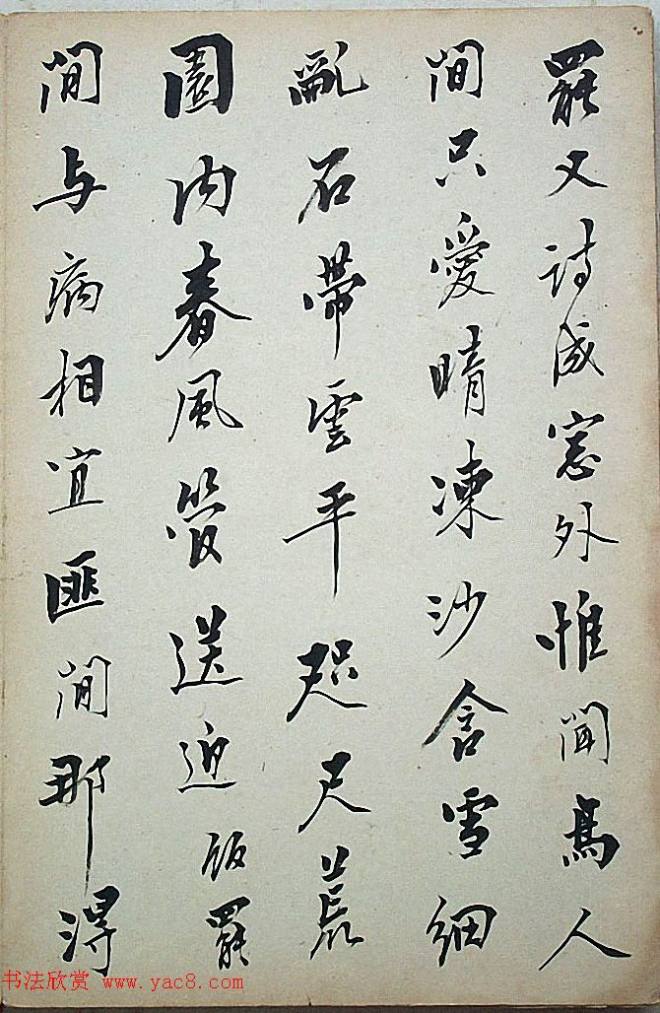 罷又詩成窓外惟聞鳥人
間只愛晴凍沙含雪細
亂石帶雲平咫尺荒
園内春風管送迎飯罷
間与病相宜匪間那得
书法欣赏 www.yac8.com